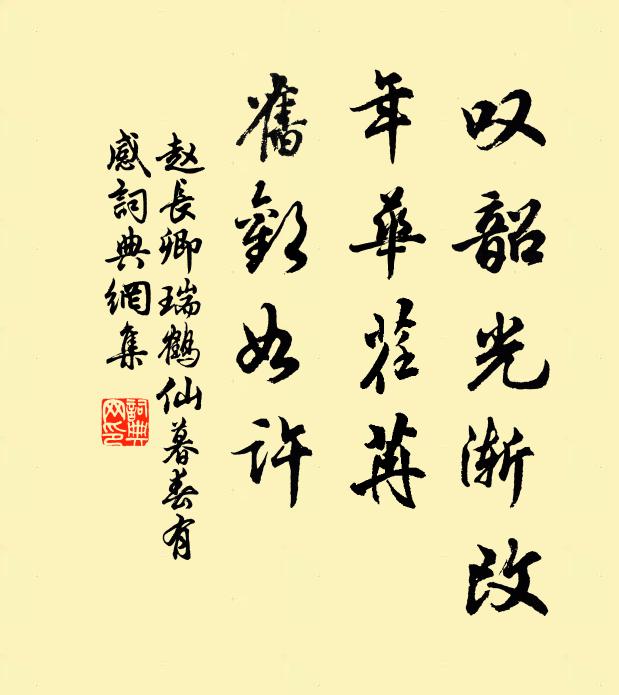 叹韶光渐改
年华荏苒
旧欢如许
赵長卿瑞鹤仙暮春有
感詞典網集
詞典网印